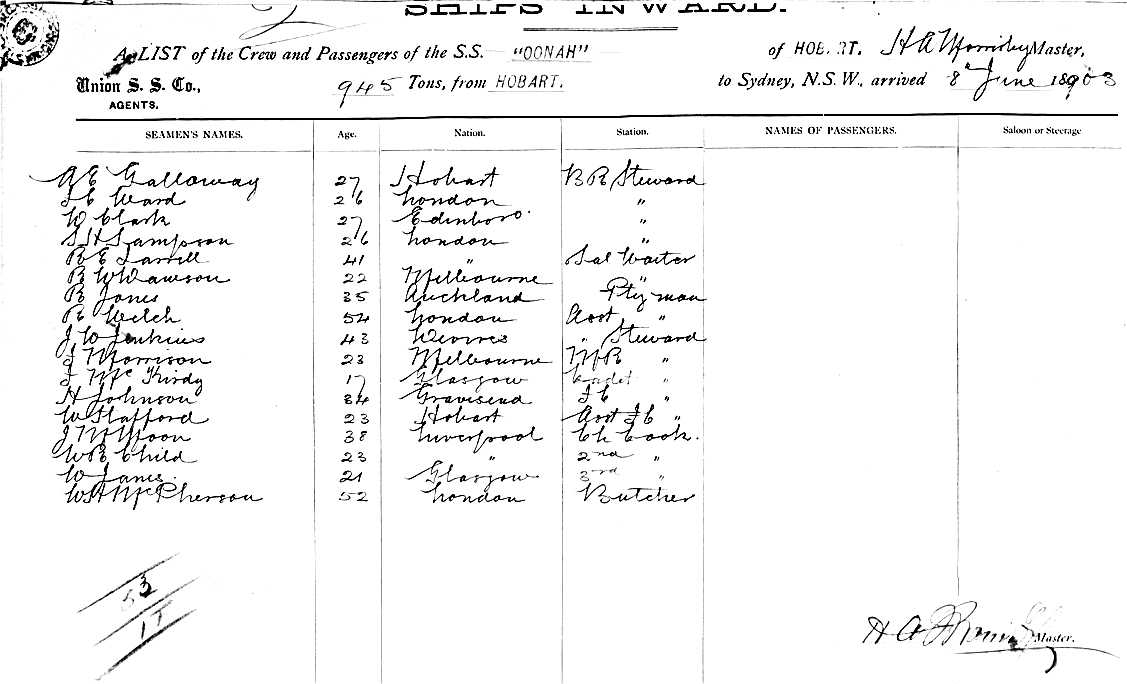 SHIPS INWARD.
A LIST of the Crew and Passengers of the S.S. "OONAH" of HOBART. H A Morrisby Master,
Union S. S. Co., AGENTS. 945 Tons, from HOBART. to Sydney, N.S.W., arrived 8th June 1903
SEAMEN'S NAMES. Age. Nation. Station. NAMES OF PASSENGERS. Saloon or Steerage
A E Galloway 27 Hobart B R Steward
Ward 26 London "
W Clark 27 Edinboro "
S H Sampson 26 London "
B E 41 " Sal Waiter
R W Dawson 22 Melbourne "
R Jones 35 Auckland Pty man
R Welch 54 London Asst "
J W Jenkins 43 " Steward
J Morrison 23 Melbourne M R "
J Mc 17 Glasgow Cadet "
H Johnson 34 Gravesend "
W Stafford 23 Hobart Asst "
J W Moon 38 Liverpool Ch Cook.
W R Child 23 " 2nd "
W Janes 21 Glasgow 3rd "
W H McPherson 52 London Butcher
53
17
H A Master.